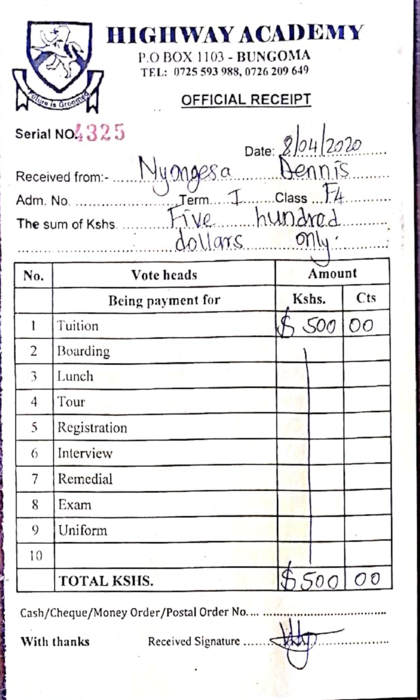 HIGHWAY ACADEMY
P.O BOX 1103 - BUNGOMA
TEL: 0725 593 988, 0726 209 649
OFFICIAL RECEIPT
Serial NO. 4325
Date: 8/04/2020
Received from:- Nyongesa Dennis
Adm. No. Term I Class F4
The sum of Kshs. Five hundred
dollars only.
No. Vote heads Amount
Being payment for Kshs. Cts
1 Tuition $ 500 00
2 Boarding
3 Lunch
4 Tour
5 Registration
6 Interview
7 Remedial
8 Exam
9 Uniform
10
TOTAL KSHS. $ 500 00
Cash/Cheque/Money Order/Postal Order No.
With thanks Received Signature